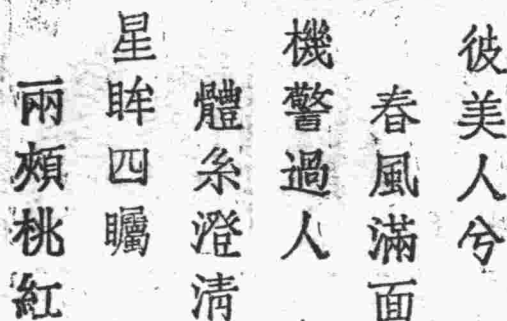 彼美人兮
春風滿面
機警過人
體系澄清
星眸四矚
兩頰桃紅